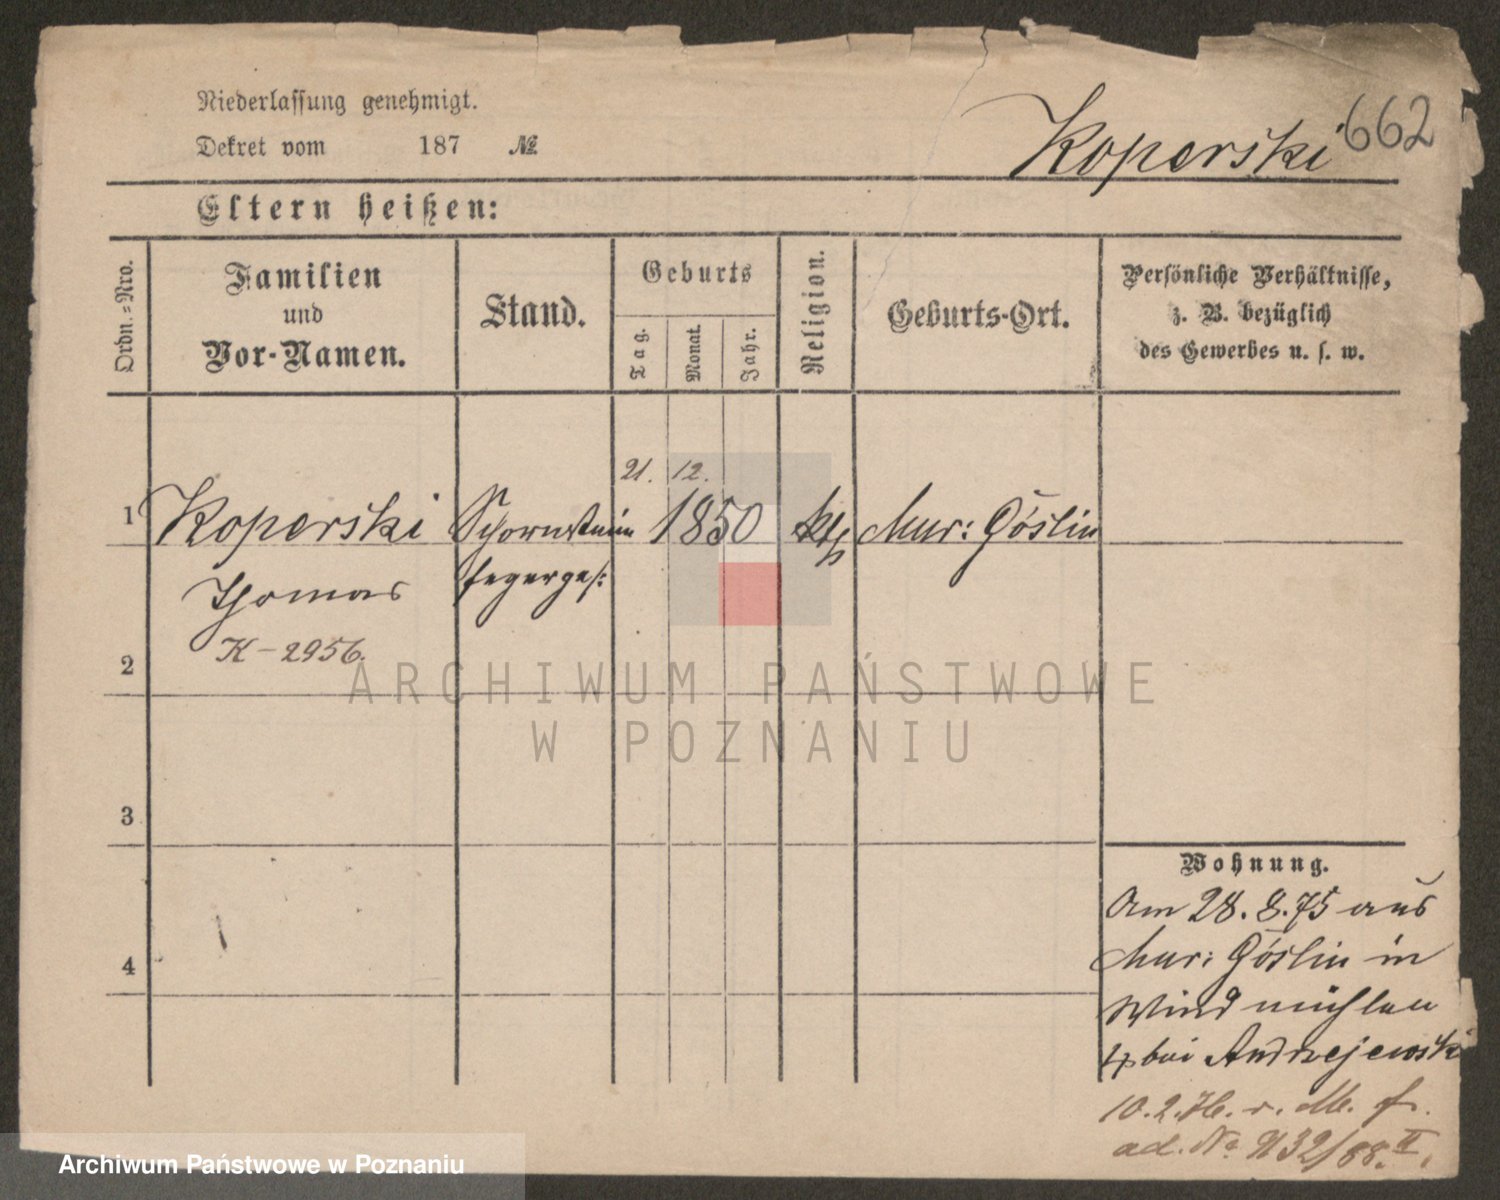 Niederlassung genehmigt.
Dekret vom 187 №
Koperski 662
Eltern heißen:
Ordn.-Nro.
Familien
und
Vor-Namen.
Stand.
Geburts
Tag.
Monat.
Jahr.
Religion.
Geburts-Ort.
Persönliche Verhältnisse,
z. B. bezüglich
des Gewerbes u. s. w.
21. 12.
1 Koperski Schornstein 1850 kth Mur: Goslin
Thomas fegerges:
K-2956.
2
3
4
Wohnung.
Am 28.8.75 aus
Mur: Goslin in
Windmühlen
bei Andrzejewski
10.2.76. v. M. f.
ad. No 32/88. II.
ARCHIWUM PAŃSTWOWE
W POZNANIU
Archiwum Państwowe w Poznaniu